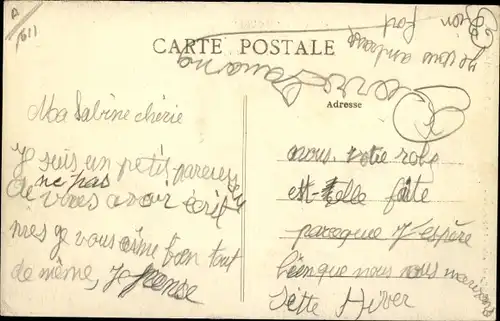 A
1611
CARTE POSTALE
Adresse
Ma Sabine chérie
Je suis un petit pareuseu
ne pas
de vous avoir écrit
mes je vous aime bien tout
de même, je pense
a nous, votre robe
est-elle faite
parceque j'espère
bien que nous nous
sette Hiver
je vous embrasse
bien fort